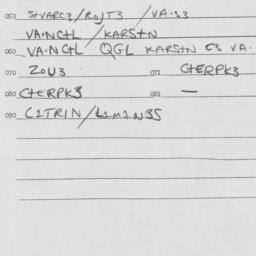 050 STVARC3/ROJT3 /VA.S3
VA.NCTL / KARSTN
060 VA.NCTL QGL KARSTN C3 VA.
070 ZOU3 071 CTERPK3
080 CTERPK3 081 —
090 CITRIN/LIMIN35